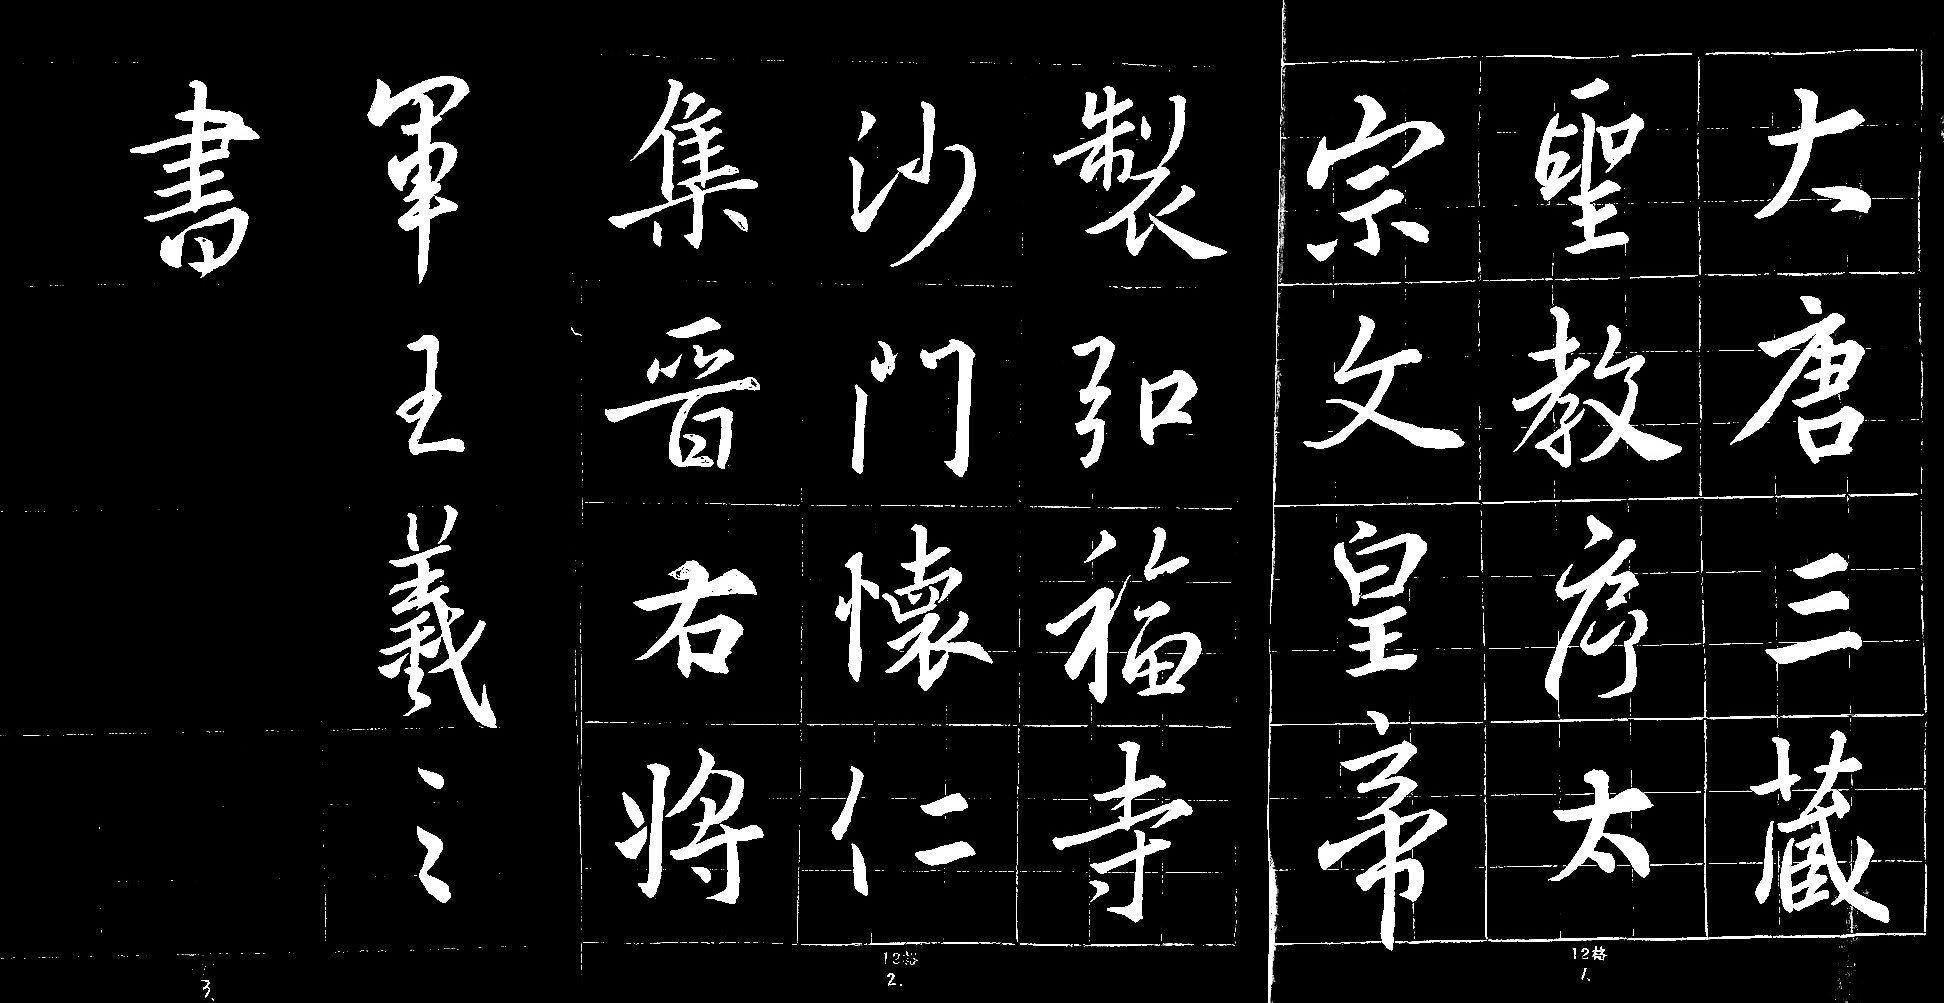 大唐三藏
聖教序太
宗文皇帝
製弘福寺
沙門懷仁
集晉右將
軍王羲之
書
12格
1.
12格
2.
3.